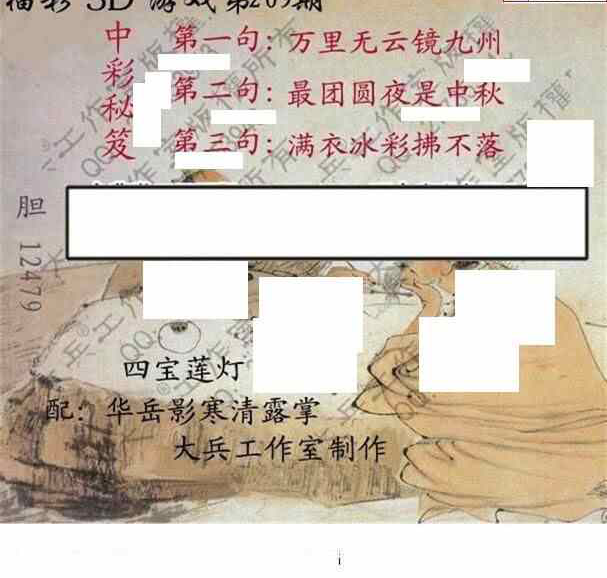 福彩3D游戏第209期
中彩秘笈
第一句：万里无云镜九州
第二句：最团圆夜是中秋
第三句：满衣冰彩拂不落
胆 12479
四宝莲灯
配：华岳影寒清露掌
大兵工作室制作